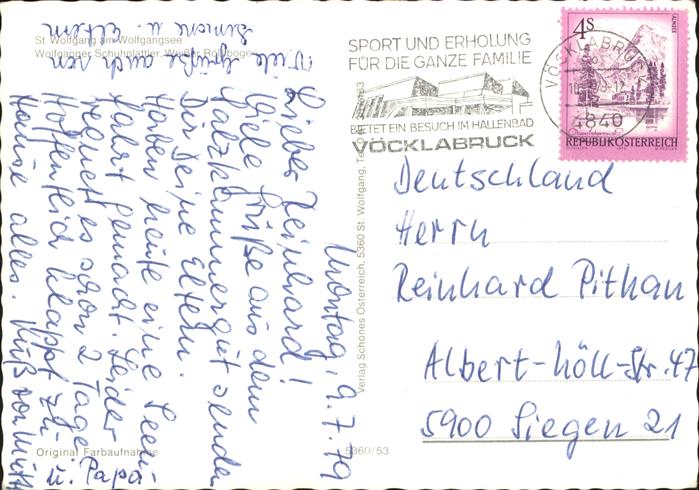 St. Wolfgang am Wolfgangsee
Wolfganger Schuhplattler Weißer Rößbogen
Montag, 9.7.79
Lieber Reinhard!
Viele Grüße aus dem
Salzkammergut senden
Dir Deine Eltern.
Haben heute eine Seen-
fahrt gemacht. Leider
regnet es schon 2 Tage.
Hoffentlich klappt zu
Hause alles. Kuß von Mutti
u. Papa
Viele Grüße auch von
u. Eltern
Original Farbaufnahme
5360/53
Verlag Schönes Österreich, 5360 St. Wolfgang,
SPORT UND ERHOLUNG
FÜR DIE GANZE FAMILIE
BIETET EIN BESUCH IM HALLENBAD
VÖCKLABRUCK
VÖCKLABRU
4840
4 S
ALMSEE
REPUBLIK ÖSTERREICH
Deutschland
Herrn
Reinhard Pithan
Albert-Höll-Str. 47
5900 Siegen 21